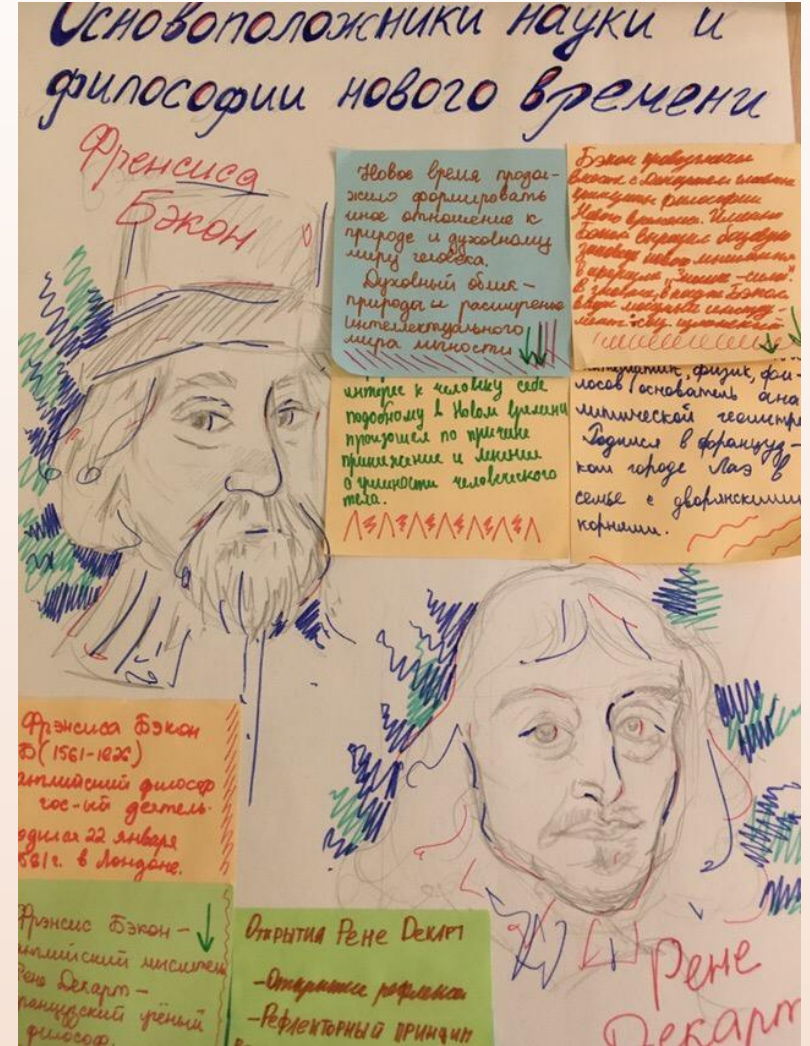 Основоположники науки и
философии нового времени
Френсиса
Бэкон
Новое время продол-
жило формировать
иное отношение к
природе и духовному
миру человека.
Духовный облик –
природы и расширенье
интеллектуального
мира личности
Бэкон
вместе с Декартом
принципы философии
Нового времени. Именно
Бэкон выразил базовую
нового мышления
в "знание - сила"
В Бэкон
интерес к человеку себе
подобному в Новом времени
произошел по причине
принижение и мнении
о человеческого
тела.
физик, фи-
лософ, основатель ана
литической геометри
Родился в француз-
ком городе Лаэ в
семье с дворянскими
корнями.
Фрэнсиса Бэкон
(1561-1626)
английский философ
гос-ый деятель.
одился 22 января
561г. в Лондоне.
Фрэнсис Бэкон –
нглийский мыслитель
Рене Декарт –
ранцузский учёный
философ.
Открытия Рене Декарт
-Открытие рефлекса
-Рефлекторный принцип
Рене
Декарт